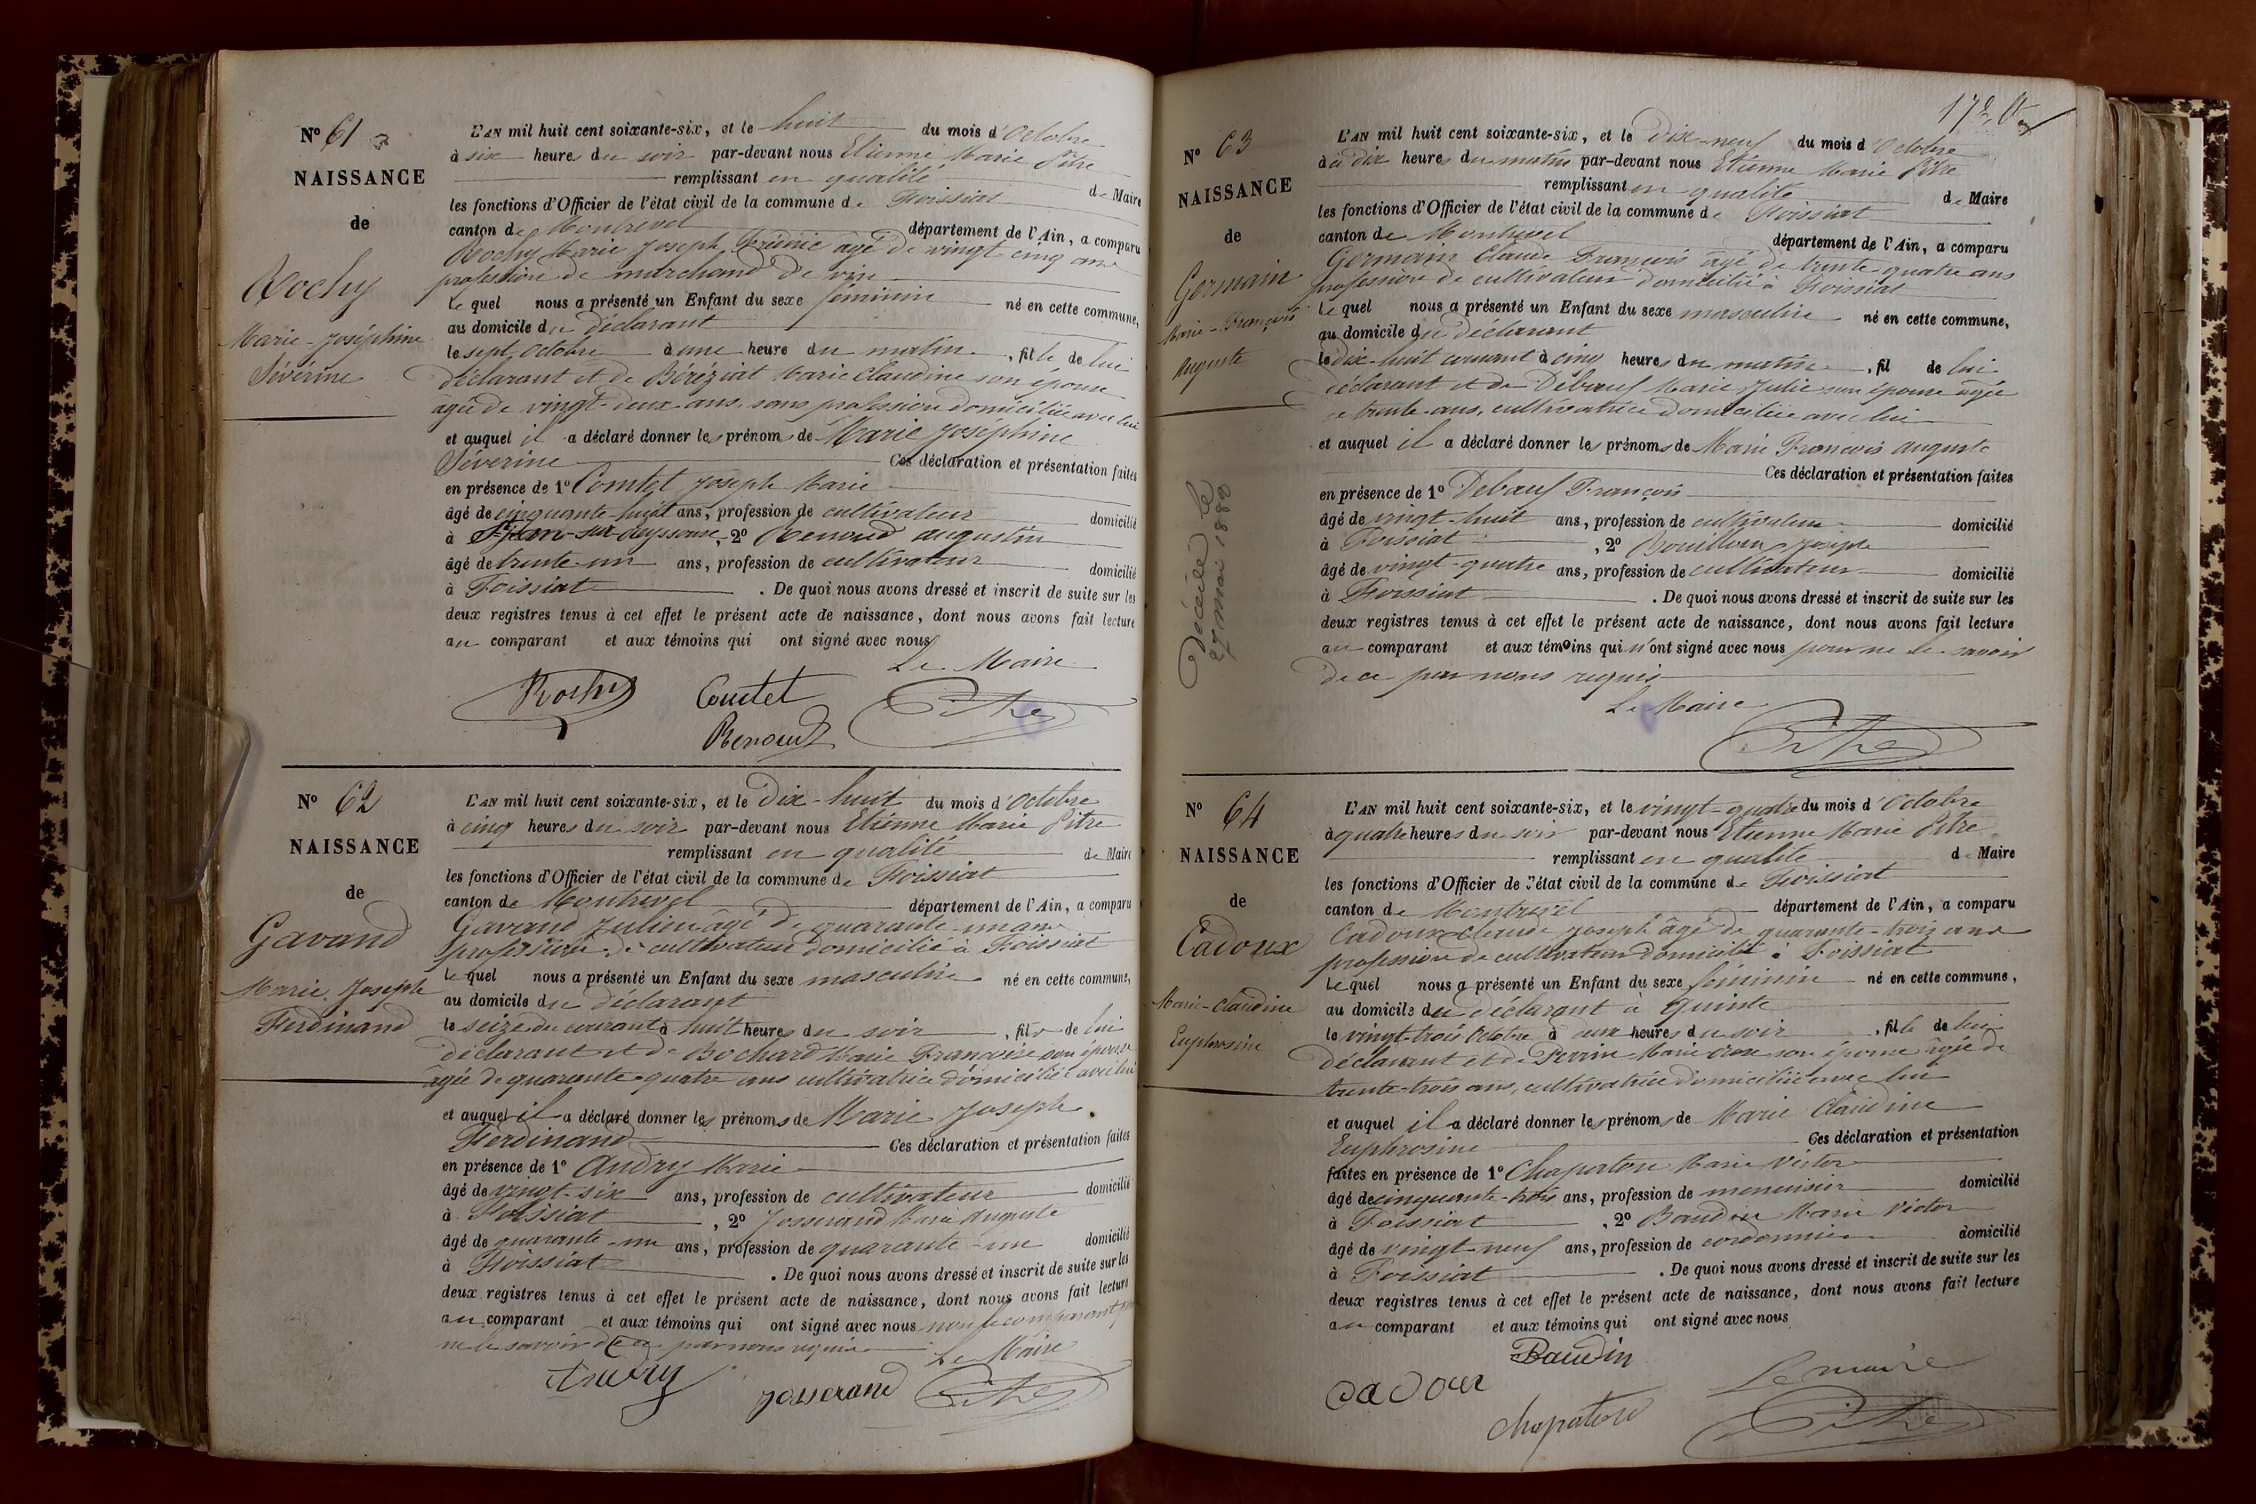 N° 61
NAISSANCE
de
Rochy
Marie-Joséphine
Séverine
L'AN mil huit cent soixante-six, et le huit du mois d'Octobre
à six heures du soir par-devant nous Etienne Marie Pitre
remplissant en qualité de Maire
les fonctions d'Officier de l'état civil de la commune de Foissiat
canton de Montrevel département de l'Ain, a comparu
Rochy Marie Joseph Frédéric âgé de vingt cinq ans
profession de marchand de vin
Lequel nous a présenté un Enfant du sexe féminin né en cette commune,
au domicile du déclarant
le sept Octobre à une heure du matin, fille de lui
déclarant et de Béréziat Marie Claudine son épouse
âgée de vingt-deux ans, sans profession domiciliée avec lui
et auquel il a déclaré donner les prénoms de Marie Joséphine
Séverine Ces déclaration et présentation faites
en présence de 1° Comtet Joseph Marie
âgé de cinquante-huit ans, profession de cultivateur domicilié
à St Jean-sur-Reyssouze, 2° Renoud augustin
âgé de trente-un ans, profession de cultivateur domicilié
à Foissiat. De quoi nous avons dressé et inscrit de suite sur les
deux registres tenus à cet effet le présent acte de naissance, dont nous avons fait lecture
au comparant et aux témoins qui ont signé avec nous
Le Maire
Rochy Comtet Pitre
Renoud
N° 62
NAISSANCE
de
Gavand
Marie Joseph
Ferdinand
L'AN mil huit cent soixante-six, et le Dix-huit du mois d'Octobre
à cinq heures du soir par-devant nous Etienne Marie Pitre
remplissant en qualité de Maire
les fonctions d'Officier de l'état civil de la commune de Foissiat
canton de Montrevel département de l'Ain, a comparu
Gavand Julien âgé de quarante-un ans
profession de cultivateur domicilié à Foissiat
Lequel nous a présenté un Enfant du sexe masculin né en cette commune,
au domicile du déclarant
le seize du courant à huit heures du soir, fils de lui
déclarant et de Bochard Marie Françoise son épouse
âgée de quarante-quatre ans cultivatrice domiciliée avec lui
et auquel il a déclaré donner les prénoms de Marie Joseph
Ferdinand Ces déclaration et présentation faites
en présence de 1° Audry Marie
âgé de vingt-six ans, profession de cultivateur domicilié
à Foissiat, 2° Josserand Marie Auguste
âgé de quarante-un ans, profession de quarante-un domicilié
à Foissiat. De quoi nous avons dressé et inscrit de suite sur les
deux registres tenus à cet effet le présent acte de naissance, dont nous avons fait lecture
au comparant et aux témoins qui ont signé avec nous non le comparant pour
ne le savoir de ce par nous requis
Le Maire
Audry Josserand Pitre
172
N° 63
NAISSANCE
de
Germain
Marie-François
Auguste
Décédé le
27 mai 1882
L'AN mil huit cent soixante-six, et le Dix-neuf du mois d'Octobre
à dix heures du matin par-devant nous Etienne Marie Pitre
remplissant en qualité de Maire
les fonctions d'Officier de l'état civil de la commune de Foissiat
canton de Montrevel département de l'Ain, a comparu
Germain Claude François âgé de trente-quatre ans
profession de cultivateur domicilié à Foissiat
Lequel nous a présenté un Enfant du sexe masculin né en cette commune,
au domicile du déclarant
le dix-huit courant à cinq heures du matin, fil de lui
déclarant et de Débœuf Marie Julie son épouse âgée
de trente ans, cultivatrice domiciliée avec lui
et auquel il a déclaré donner les prénoms de Marie François Auguste
Ces déclaration et présentation faites
en présence de 1° Debœuf François
âgé de vingt-huit ans, profession de cultivateur domicilié
à Foissiat, 2° Bouilloux Joseph
âgé de vingt-quatre ans, profession de cultivateur domicilié
à Foissiat. De quoi nous avons dressé et inscrit de suite sur les
deux registres tenus à cet effet le présent acte de naissance, dont nous avons fait lecture
au comparant et aux témoins qui n'ont signé avec nous pour ne le savoir
de ce par nous requis
Le Maire
Pitre
N° 64
NAISSANCE
de
Cadoux
Marie-Claudine
Euphrosine
L'AN mil huit cent soixante-six, et le vingt-quatre du mois d'Octobre
à quatre heures du soir par-devant nous Etienne Marie Pitre
remplissant en qualité de Maire
les fonctions d'Officier de l'état civil de la commune de Foissiat
canton de Montrevel département de l'Ain, a comparu
Cadoux Claude Joseph âgé de quarante-trois ans
profession de cultivateur domicilié à Foissiat
Lequel nous a présenté un Enfant du sexe féminin né en cette commune,
au domicile du déclarant à
le vingt-trois Octobre à heures du soir, fille de lui
déclarant et de Perrin Marie Rose son épouse âgée de
trente-trois ans, cultivatrice domiciliée avec lui
et auquel il a déclaré donner les prénoms de Marie Claudine
Euphrosine Ces déclaration et présentation
faites en présence de 1° Chapaton Marie Victor
âgé de cinquante-trois ans, profession de menuisier domicilié
à Foissiat, 2° Baudin Marie Victor
âgé de vingt-neuf ans, profession de cordonnier domicilié
à Foissiat. De quoi nous avons dressé et inscrit de suite sur les
deux registres tenus à cet effet le présent acte de naissance, dont nous avons fait lecture
au comparant et aux témoins qui ont signé avec nous
Baudin
Cadoux Le maire
Chapaton Pitre